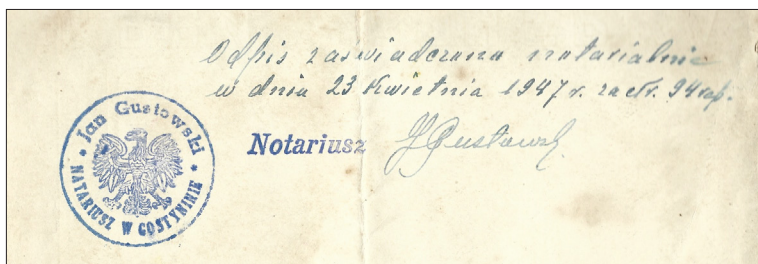 Odpis zaświadczono notarialnie
w dniu 23 Kwietnia 1947 r. za Nr. 94 rep.
Jan Gustowski
NATARIUSZ W GOSTYNINIE
Notariusz JGustowski